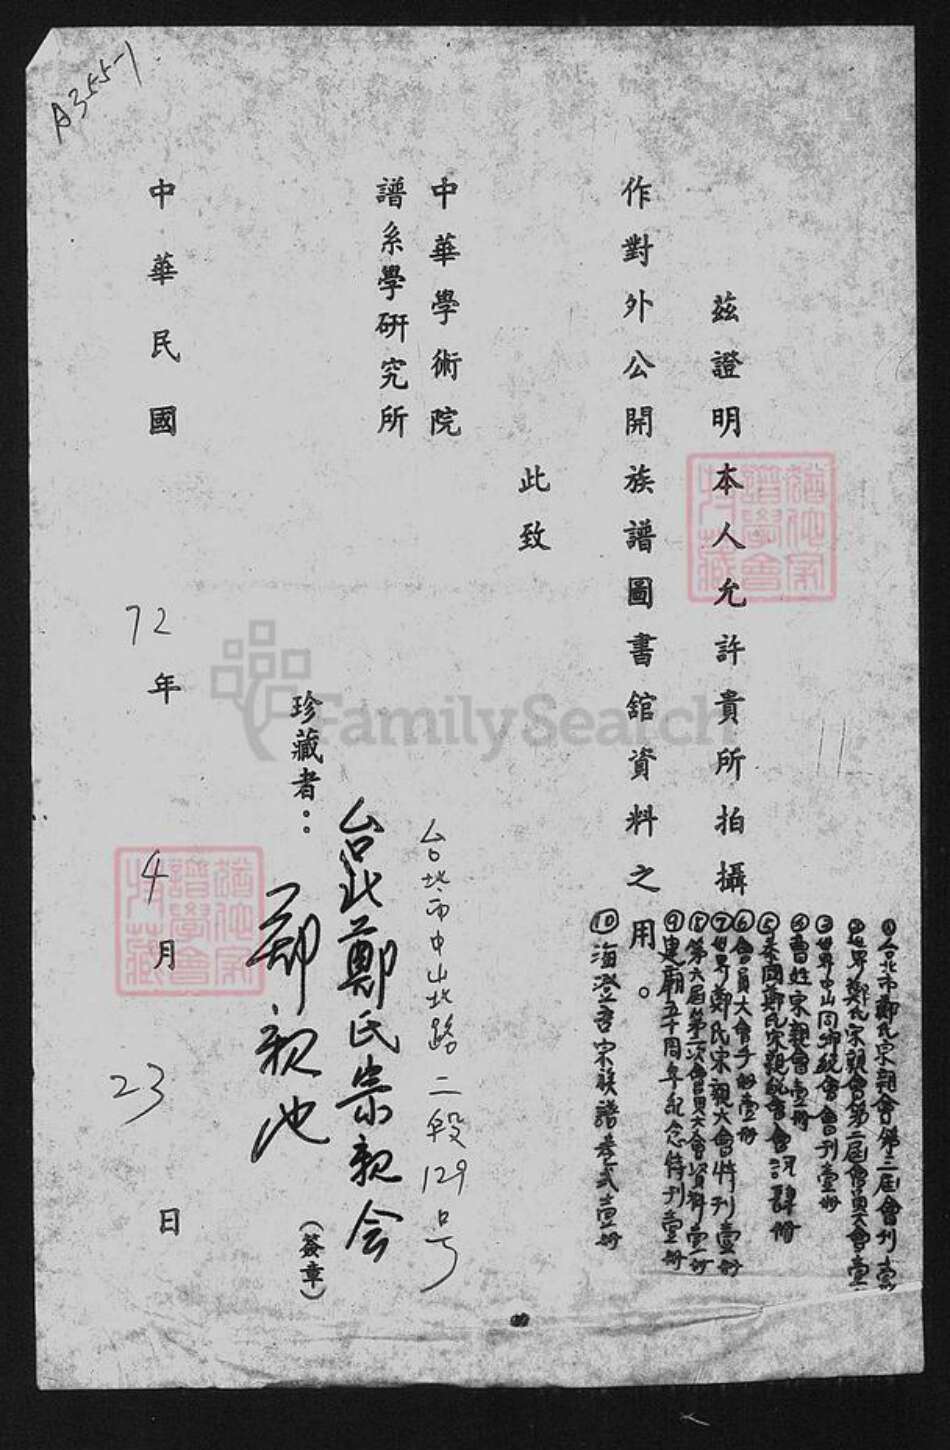 A355-1
茲證明本人允許貴所拍攝
①台北市鄭氏宗親會第三屆會刊壹
②世界鄭氏宗親會第二屆會員大會壹
③世界中山同鄉總會會刊壹册
④曹姓宗親會壹册
⑤泰國鄭氏宗親總會會訊肆册
⑥會員大會手册壹册
⑦世界鄭氏宗親大會特刊壹册
⑧第六屆第二次會員大會資料壹册
⑨建廟五十周年紀念特刊壹册
⑩海澄 宗族譜 壹册
作對外公開族譜圖書館資料之用。
此致
中華學術院
譜系學研究所
台北市中山北路二段129号
台北鄭氏宗親会
珍藏者：鄭親池
（簽章）
中華民國72年4月23日
譜學會
珍藏
FamilySearch